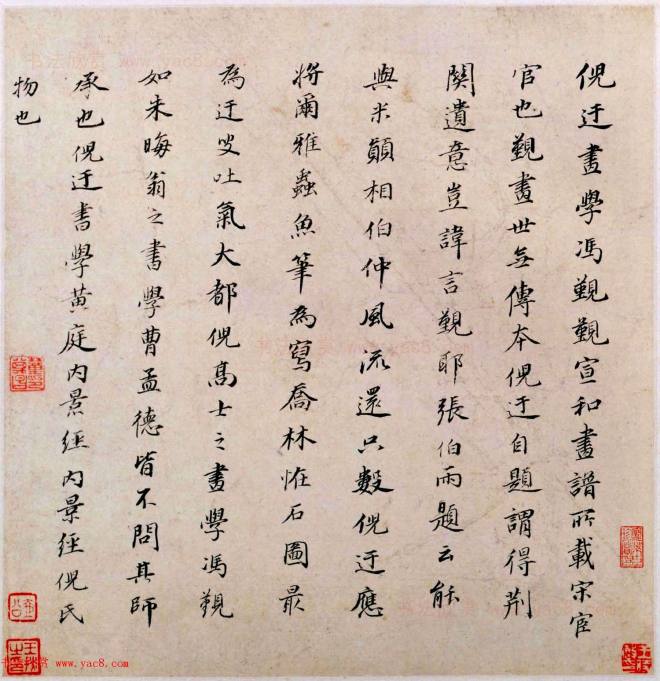 倪迂畫學馮覲覲宣和畫譜所載宋宦
官也覲畫世無傳本倪迂自題謂得荆
關遺意豈諱言覲耶張伯雨題云能
與米顛相伯仲風流還只數倪迂應
將爾雅蟲魚筆為寫喬林恠石圖最
為迂叟吐氣大都倪高士之畫學馮覲
如朱晦翁之書學曹孟德皆不問其師
承也倪迂書學黄庭内景經内景經倪氏
物也
www.yac8.com
www.yac8.com